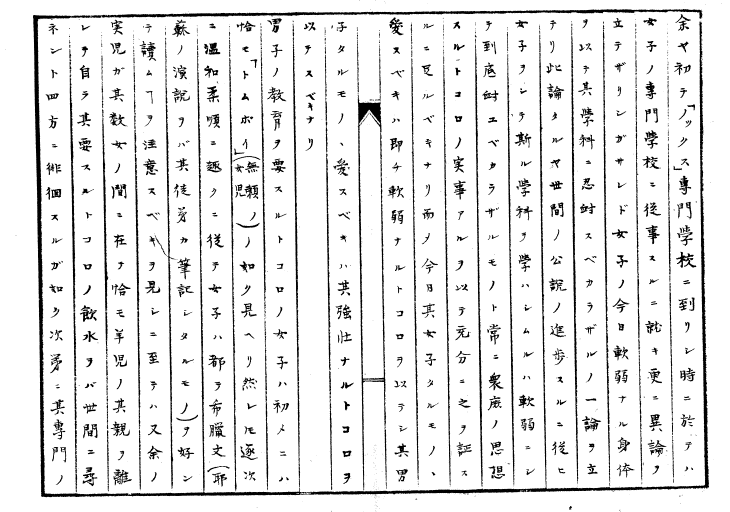 余ヤ初テ「ノックス」専門學校ニ到リシ時ニ於テハ
女子ノ専門學校ニ従事スルニ就キ更ニ異論ヲ
立テザリシガサレド女子ノ今日軟弱ナル身体
ヲ以テ其學科ニ忍耐スベカラザルノ一論ヲ立
テリ此論タルヤ世間ノ公説ノ進歩スルニ從ヒ
女子ヲシテ斯ル學科ヲ學ハシムルハ軟弱ニシ
テ到底耐ユベカラザルモノト常ニ衆庶ノ思想
スルトコロノ実事アルヲ以テ充分ニ之ヲ証ス
ルニ足ルベキナリ而メ今日其女子タルモノヽ
愛スベキハ即チ軟弱ナルトコロヲ以テシ其男
子タルモノヽ愛スベキハ其強壮ナルトコロヲ
以テスベキナリ
男子ノ教育ヲ要スルトコロノ女子ハ初メニハ
恰モ「トムボイ」(無頼ノ女児)ノ如ク見ヘリ然レ𪜈逐次
ニ温和柔順ニ趣クニ従テ女子ハ都テ希臘文(耶
蘇ノ演説ヲバ其徒弟カ筆記シタルモノ)ヲ好ン
テ讀ムヿヲ注意スベキヲ見シニ至テハ又余ノ
実児ガ其数女ノ間ニ在ナ恰モ羊児ノ其親ヲ離
レテ自ラ其要スルトコロノ飲水ヲバ世間ニ尋
ネント四方ニ徘徊スルガ如ク次第ニ其専門ノ